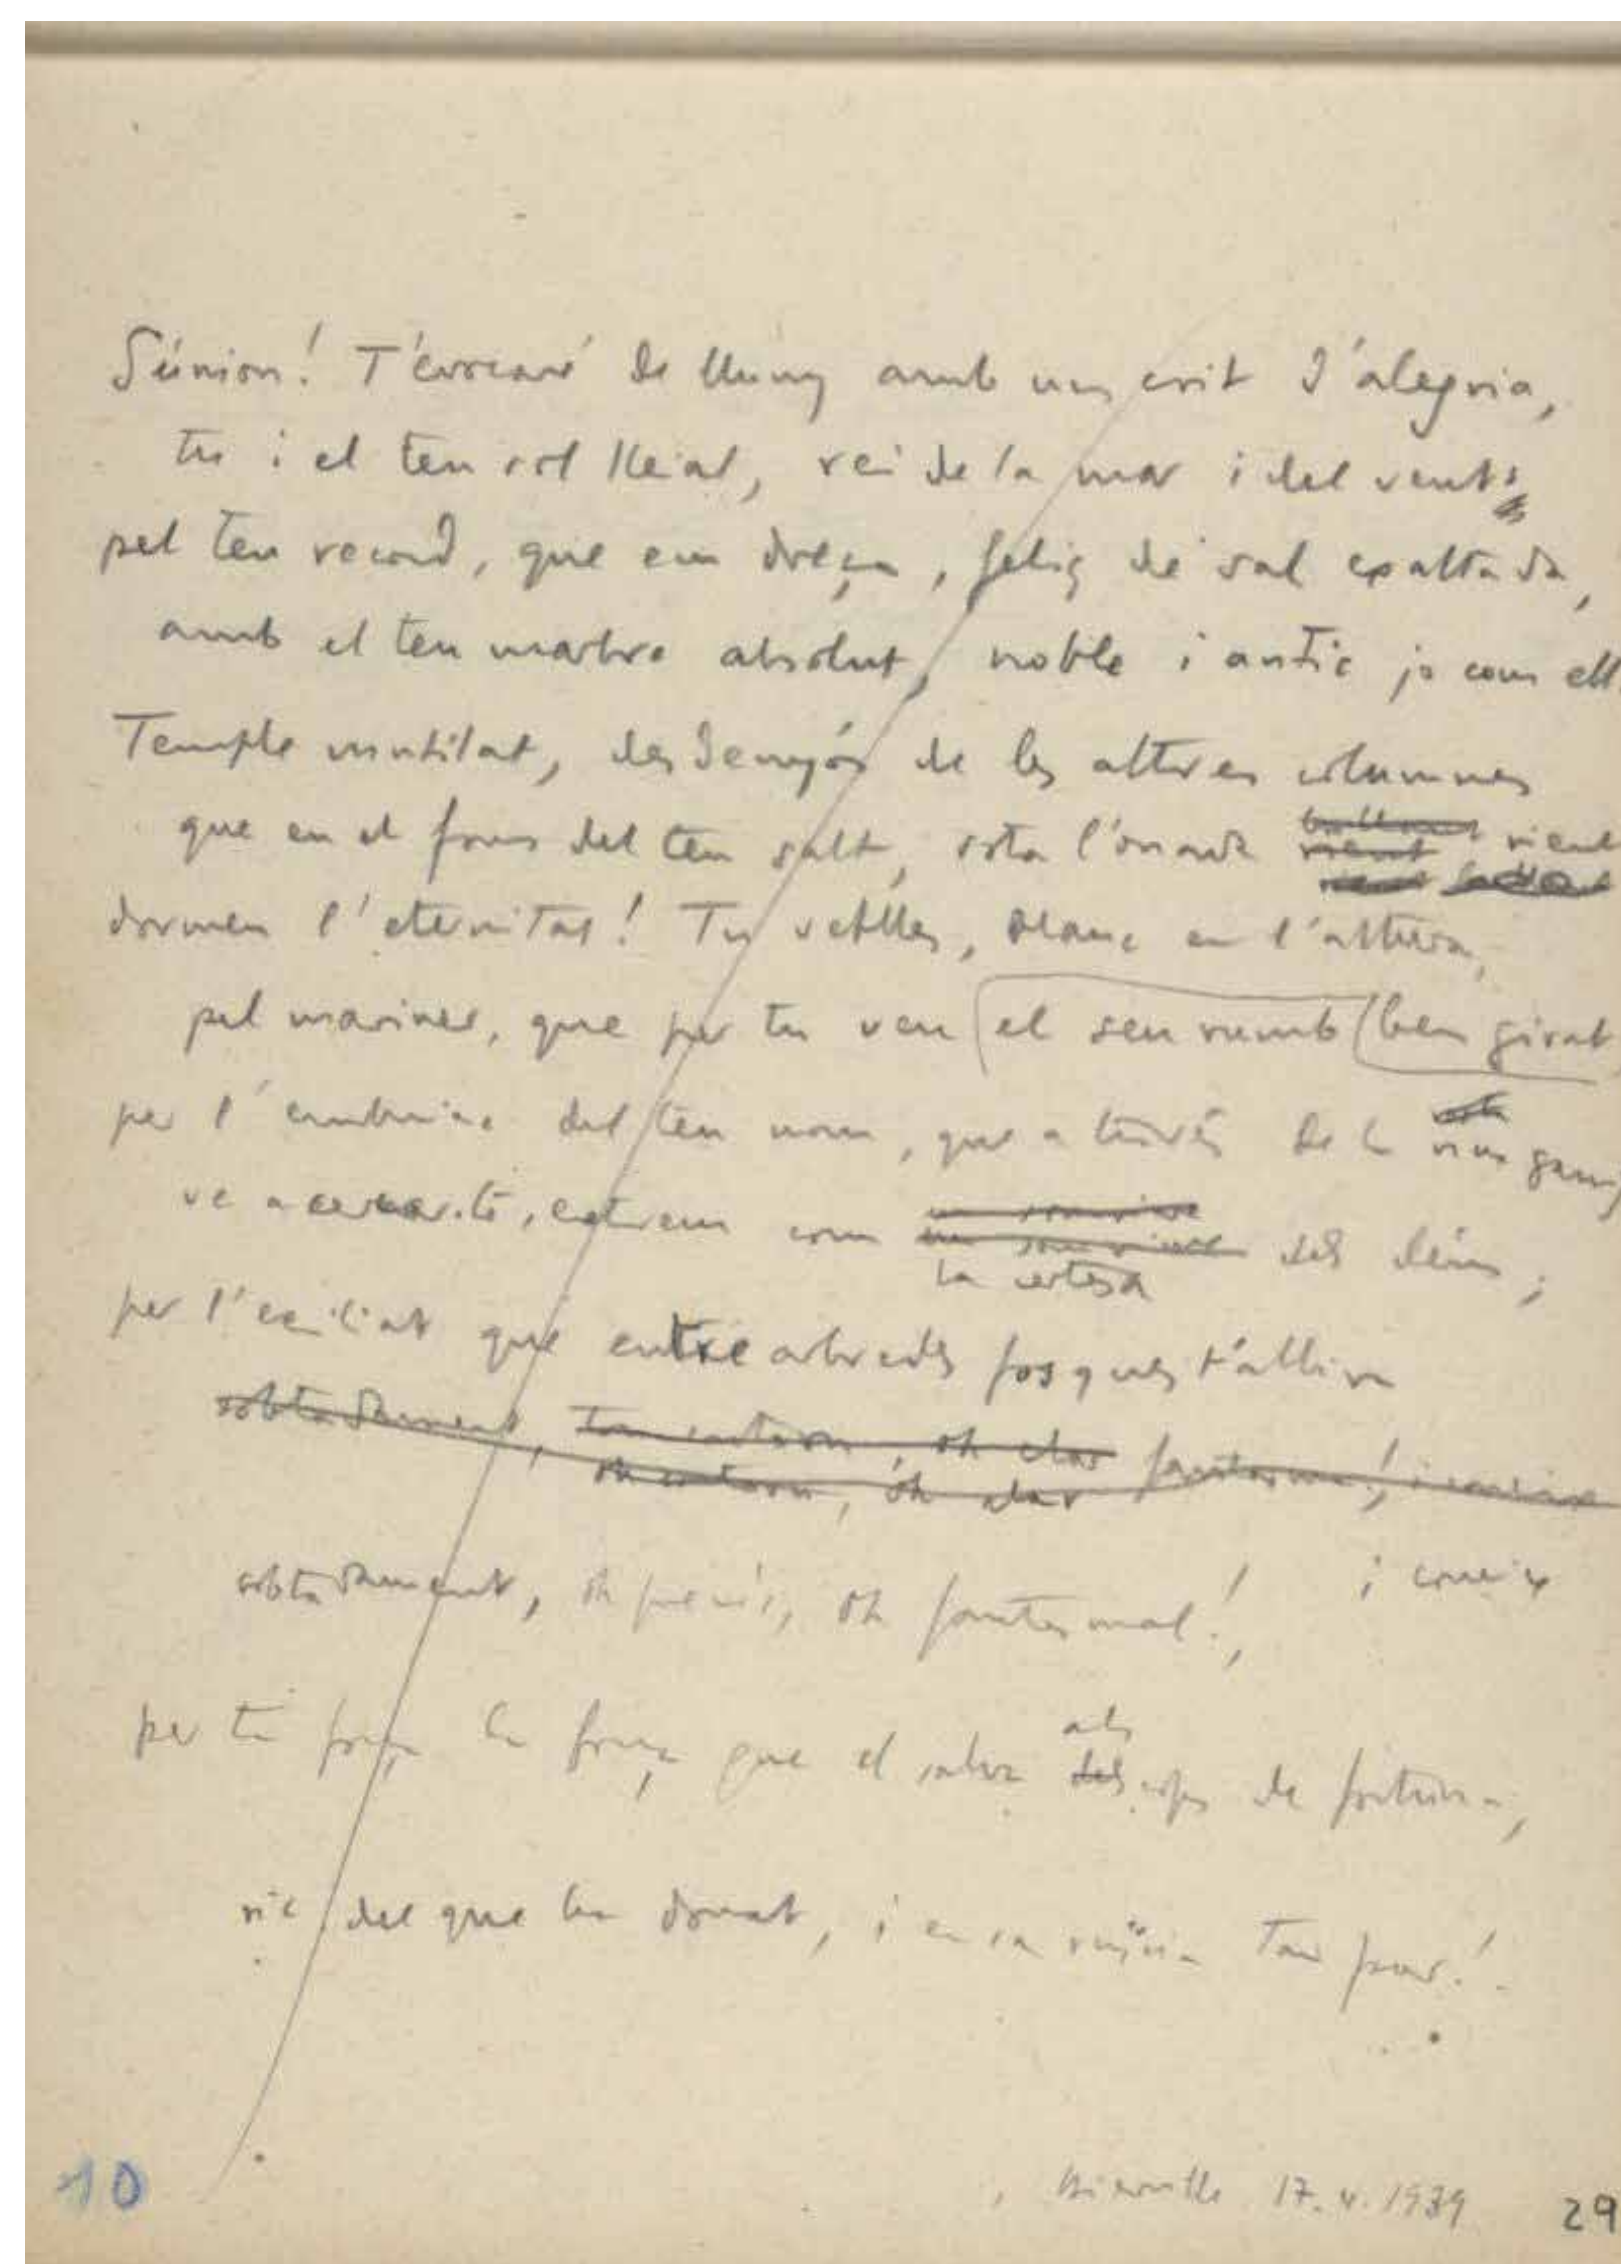 Súnion! T'evocaré de lluny amb un crit d'alegria,
tu i el teu sol lleial, rei de la mar i del vent:
pel teu record, que em dreça, feliç de sal exaltada,
amb el teu marbre absolut, noble i antic jo com ell
Temple mutilat, desdenyós de les altres columnes
que en el fons del teu salt, sota l'onada rient
dormen l'eternitat! Tu vetlles, blanc en l'altura,
pel mariner, que per tu veu el seu rumb ben girat
per l'embriac del teu nom, que a través de la nua garriga
ve a cercar-te, extrem com
un somriure
un somriure dels déus;
la certesa
per l'exiliat que entre arbredes fosques t'albira
sobtadament, fantasma!, i coneix
oh clar
sobtadament, oh precís, oh fantasmal! i coneix
per ta força la força que el salva
als
dels cops de fortuna,
ric del que ha donat, i en sa ruïna tan pur!
10
Bierville 17.4.1939
29